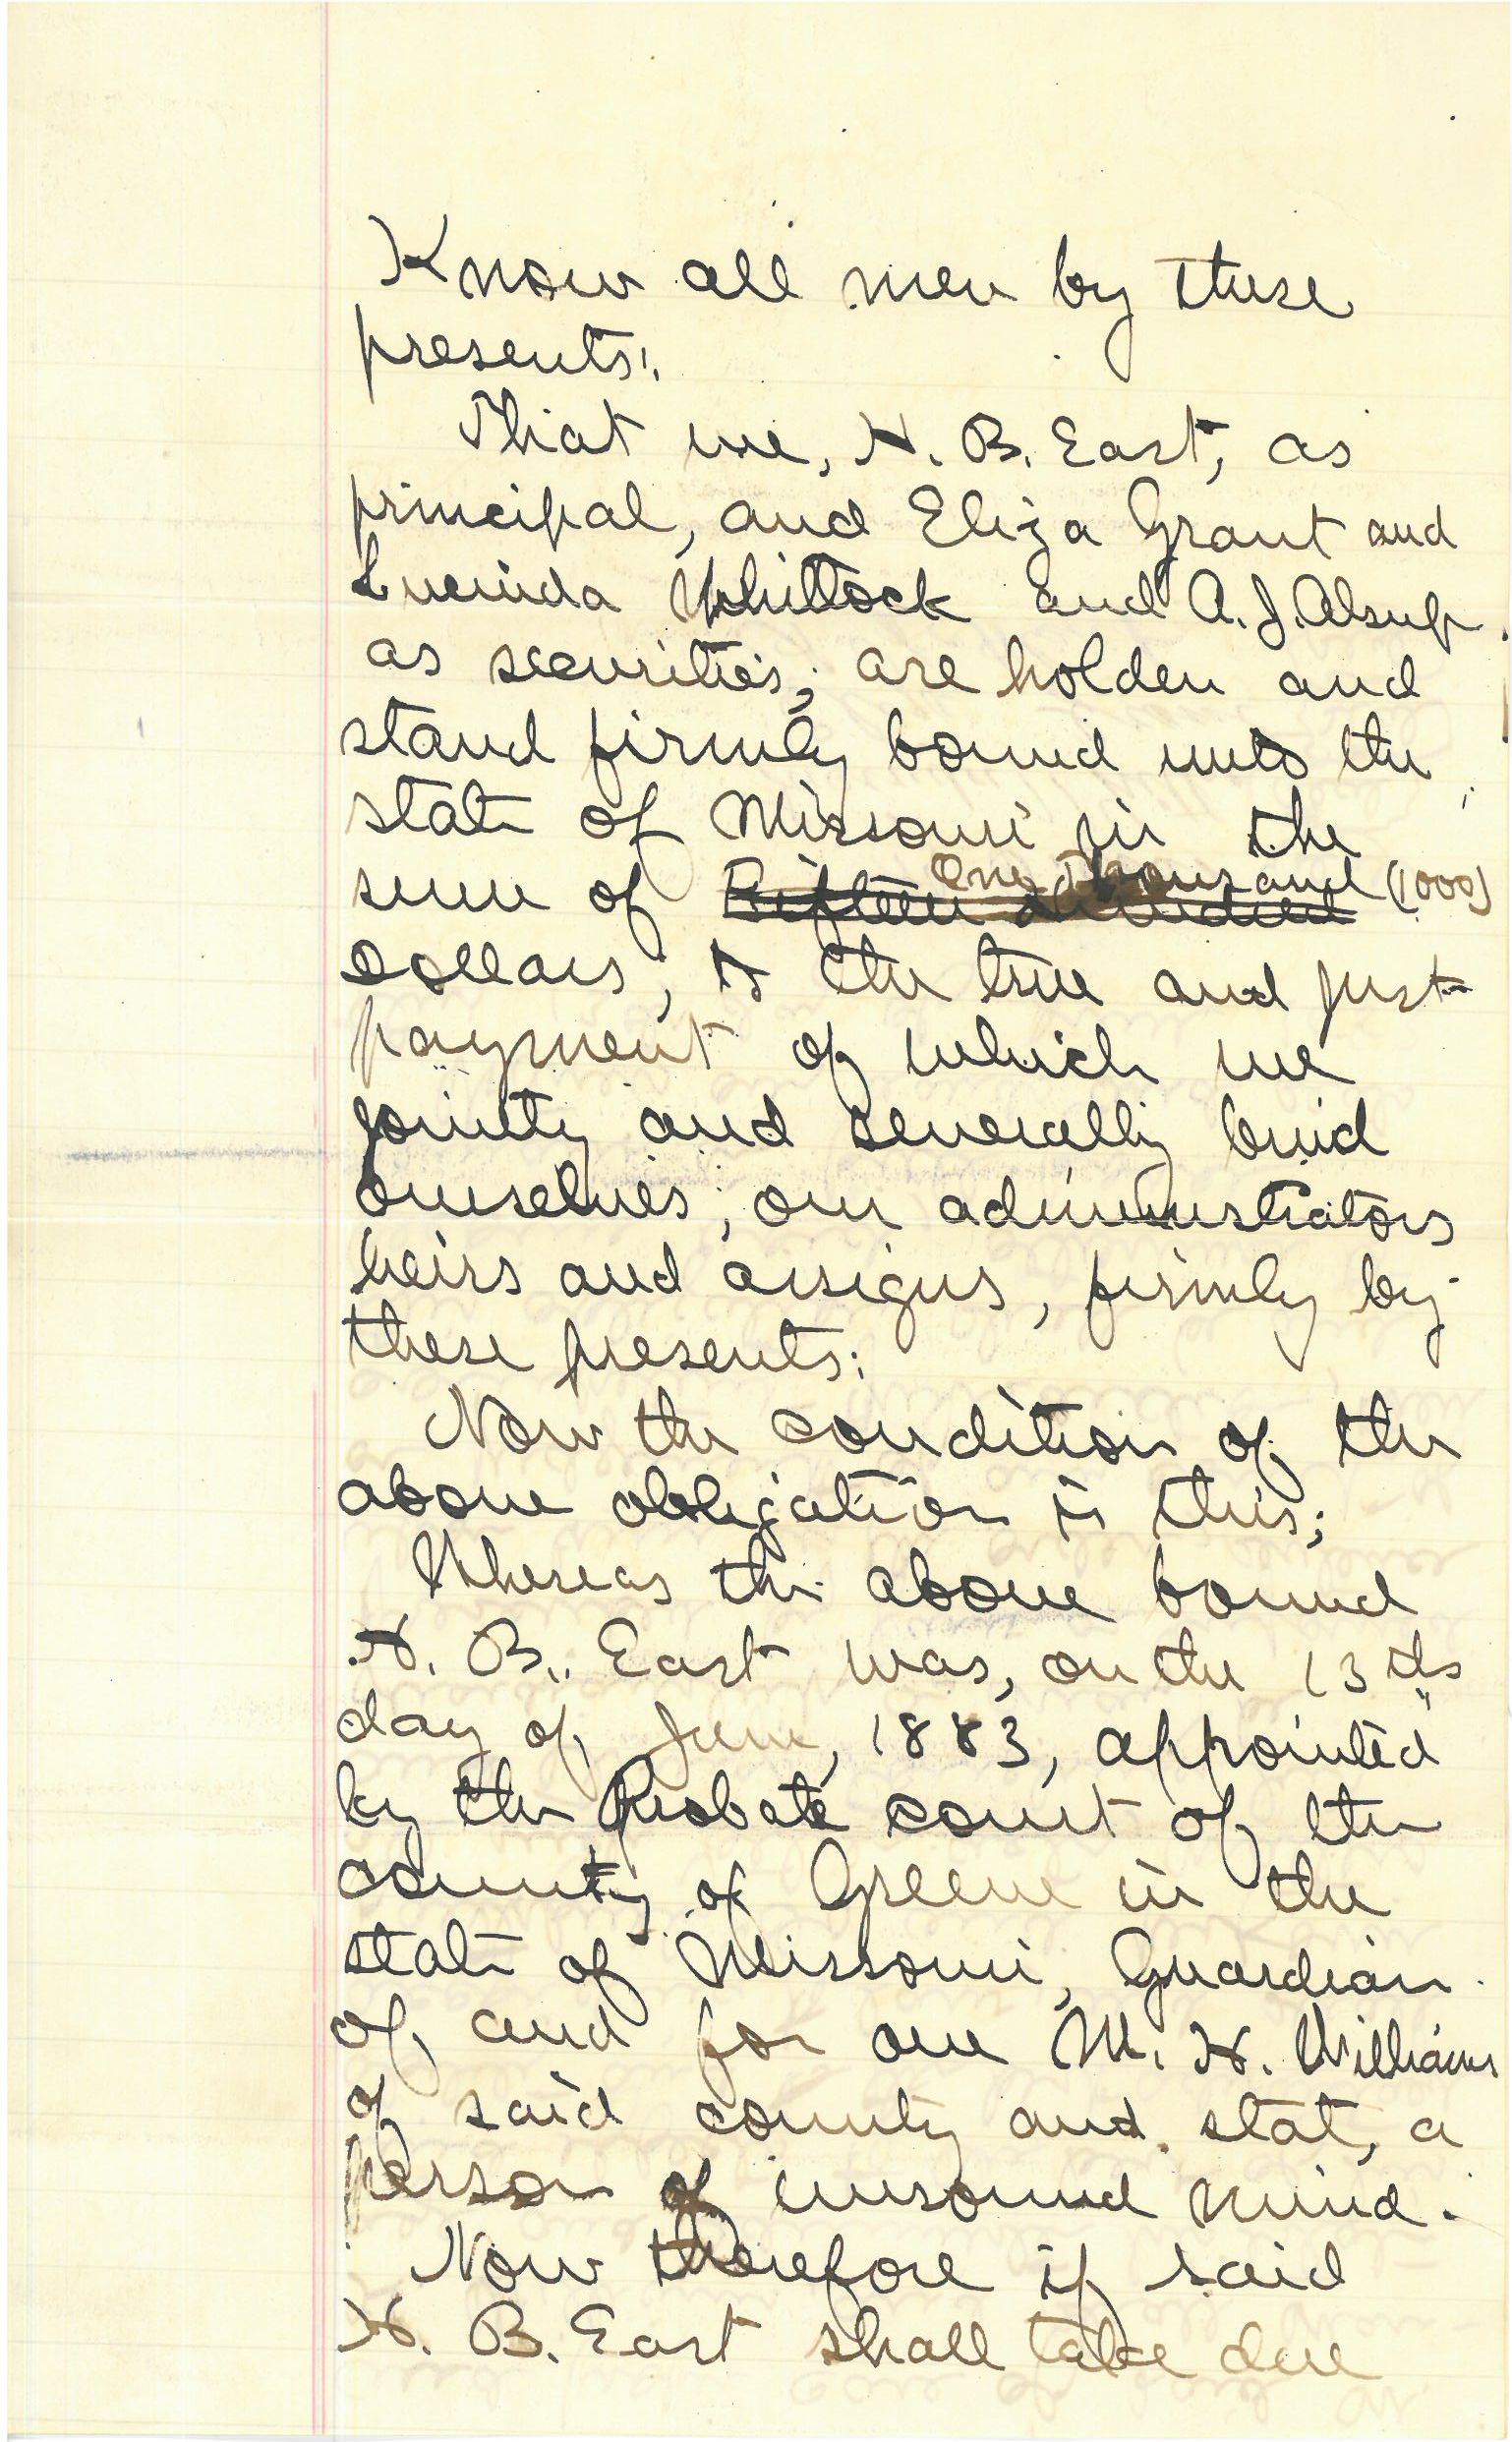 Know all men by these
presents:
That we, H. B. East, as
principal, and Eliza Grant and
Lucinda Whittock and A. J. Alsup
as securities, are holden and
stand firmly bound unto the
state of Missouri in the
One Thousand (1000)
sum of Fifteen Hundred
Dollars, to the true and just
payment of which we
jointly and severally bind
ourselves, our administrators
heirs and assigns, firmly by
these presents:
Now the condition of the
above obligation is this;
Whereas the above bound
H. B. East was, on the 13th
day of June, 1883, appointed
by the Probate court of the
county of Greene in the
state of Missouri, Guardian
of and for one M. H. Williams
of said county and stat, a
person of unsound mind.
Now therefore if said
H. B. East shall take due